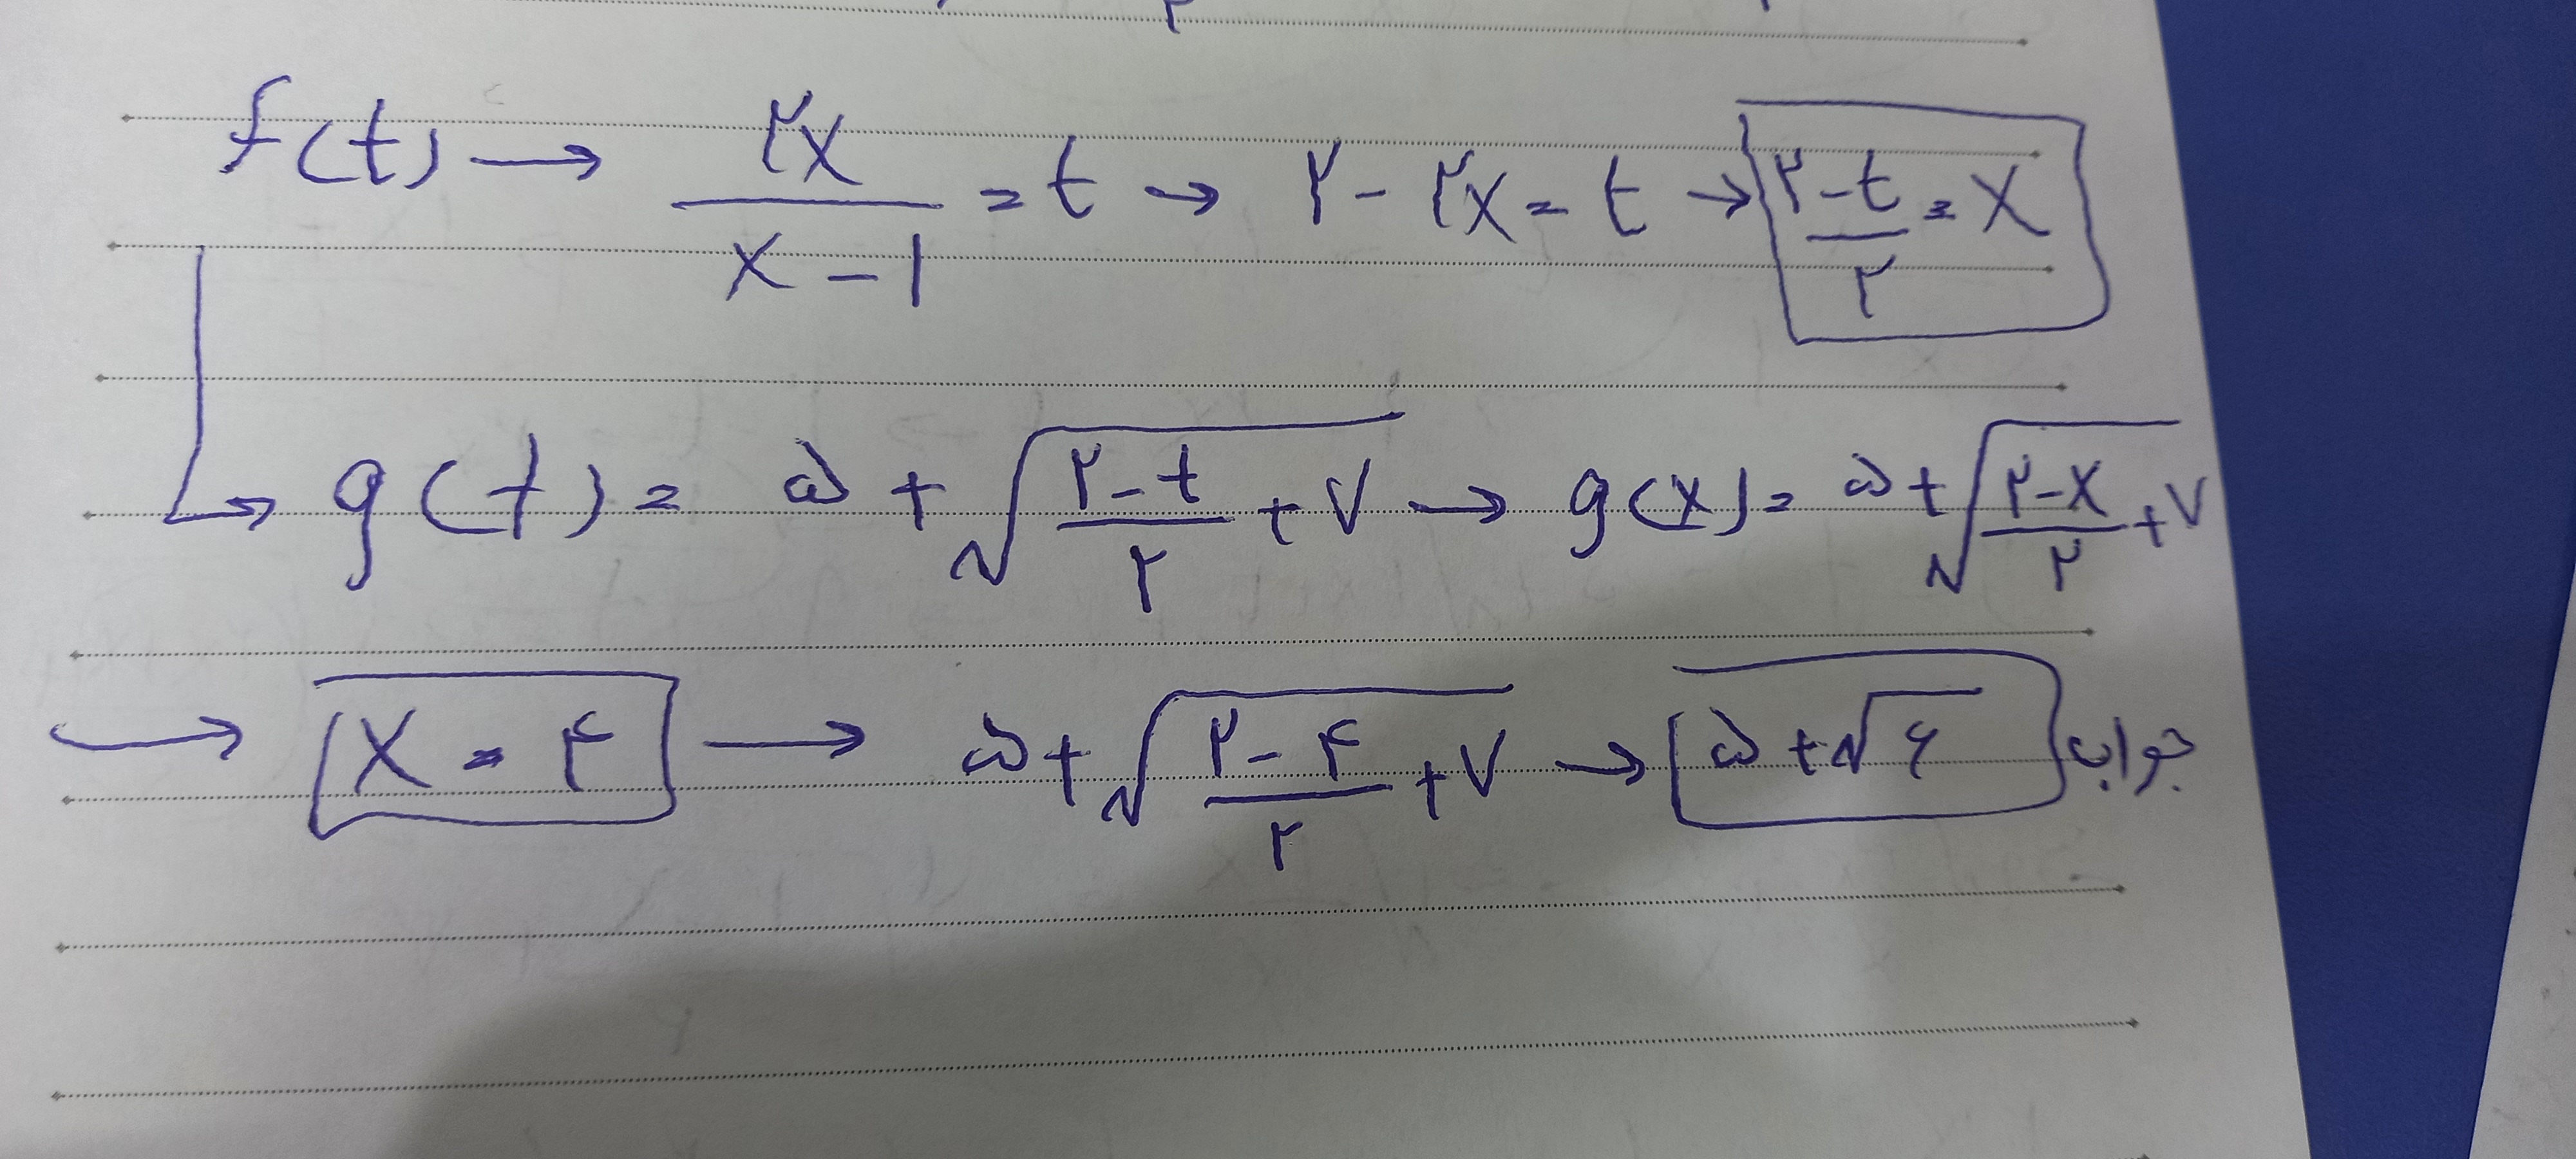 f(t) → ۲x / x - ۱ = t → ۲ - ۲x = t → ۲-t / ۲ = x
↳ g(t) = ۵ + √(۲-t / ۲ + ۷) → g(x) = ۵ + √(۲-x / ۲ + ۷)
→ x = ۴ → ۵ + √(۲-۴ / ۲ + ۷) → ۵ + √۶ جواب